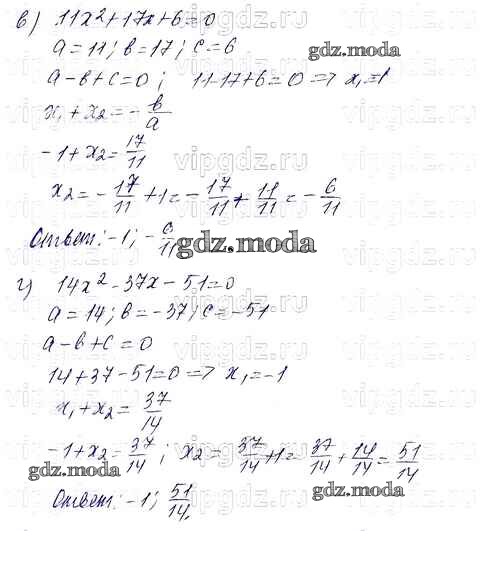 в) 11x²+17x+6=0
a=11; в=17; c=6
a-в+c=0; 11-17+6=0 => x₁=-1
x₁+x₂=-в/a
-1+x₂=17/11
x₂=-17/11+1=-17/11+11/11=-6/11
Ответ: -1; -6/11
gdz.moda
г) 14x²-37x-51=0
a=14; в=-37; c=-51
a-в+c=0
14+37-51=0 => x₁=-1
x₁+x₂=37/14
-1+x₂=37/14; x₂=37/14+1=37/14+14/14=51/14
gdz.moda
Ответ: -1; 51/14.
gdz.moda
gdz.moda
vipgdz.ru